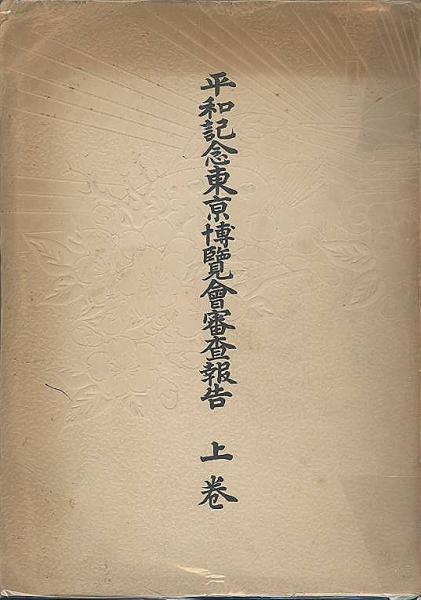 平和記念東京博覽會審査報告 上卷